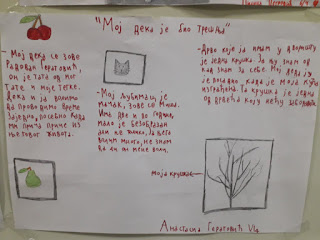 "Мој дека је био трешња"
- Мој дека се зове
Радован Гаратовић,
он је тата од мог
тате и моје тетке.
Дека и ја волимо
да проводимо време
заједно, посебно када
ми прича приче из
његовог живота.
- Мој љубимац је
мачак, зове се
Има две и по године,
мало је безобразан
али не важно, ја њега
волим много, не знам
да ли он мене воли.
- Дрво које ја имам у дворишту
је једна крушка. За њу знам од
кад знам за себе. Мој деда ју
је посадио када је моја кућа
изграђена. Та крушка је једно
од дрвећа које нећу заборавити.
моја крушка
Анастасија Гаратовић VIa